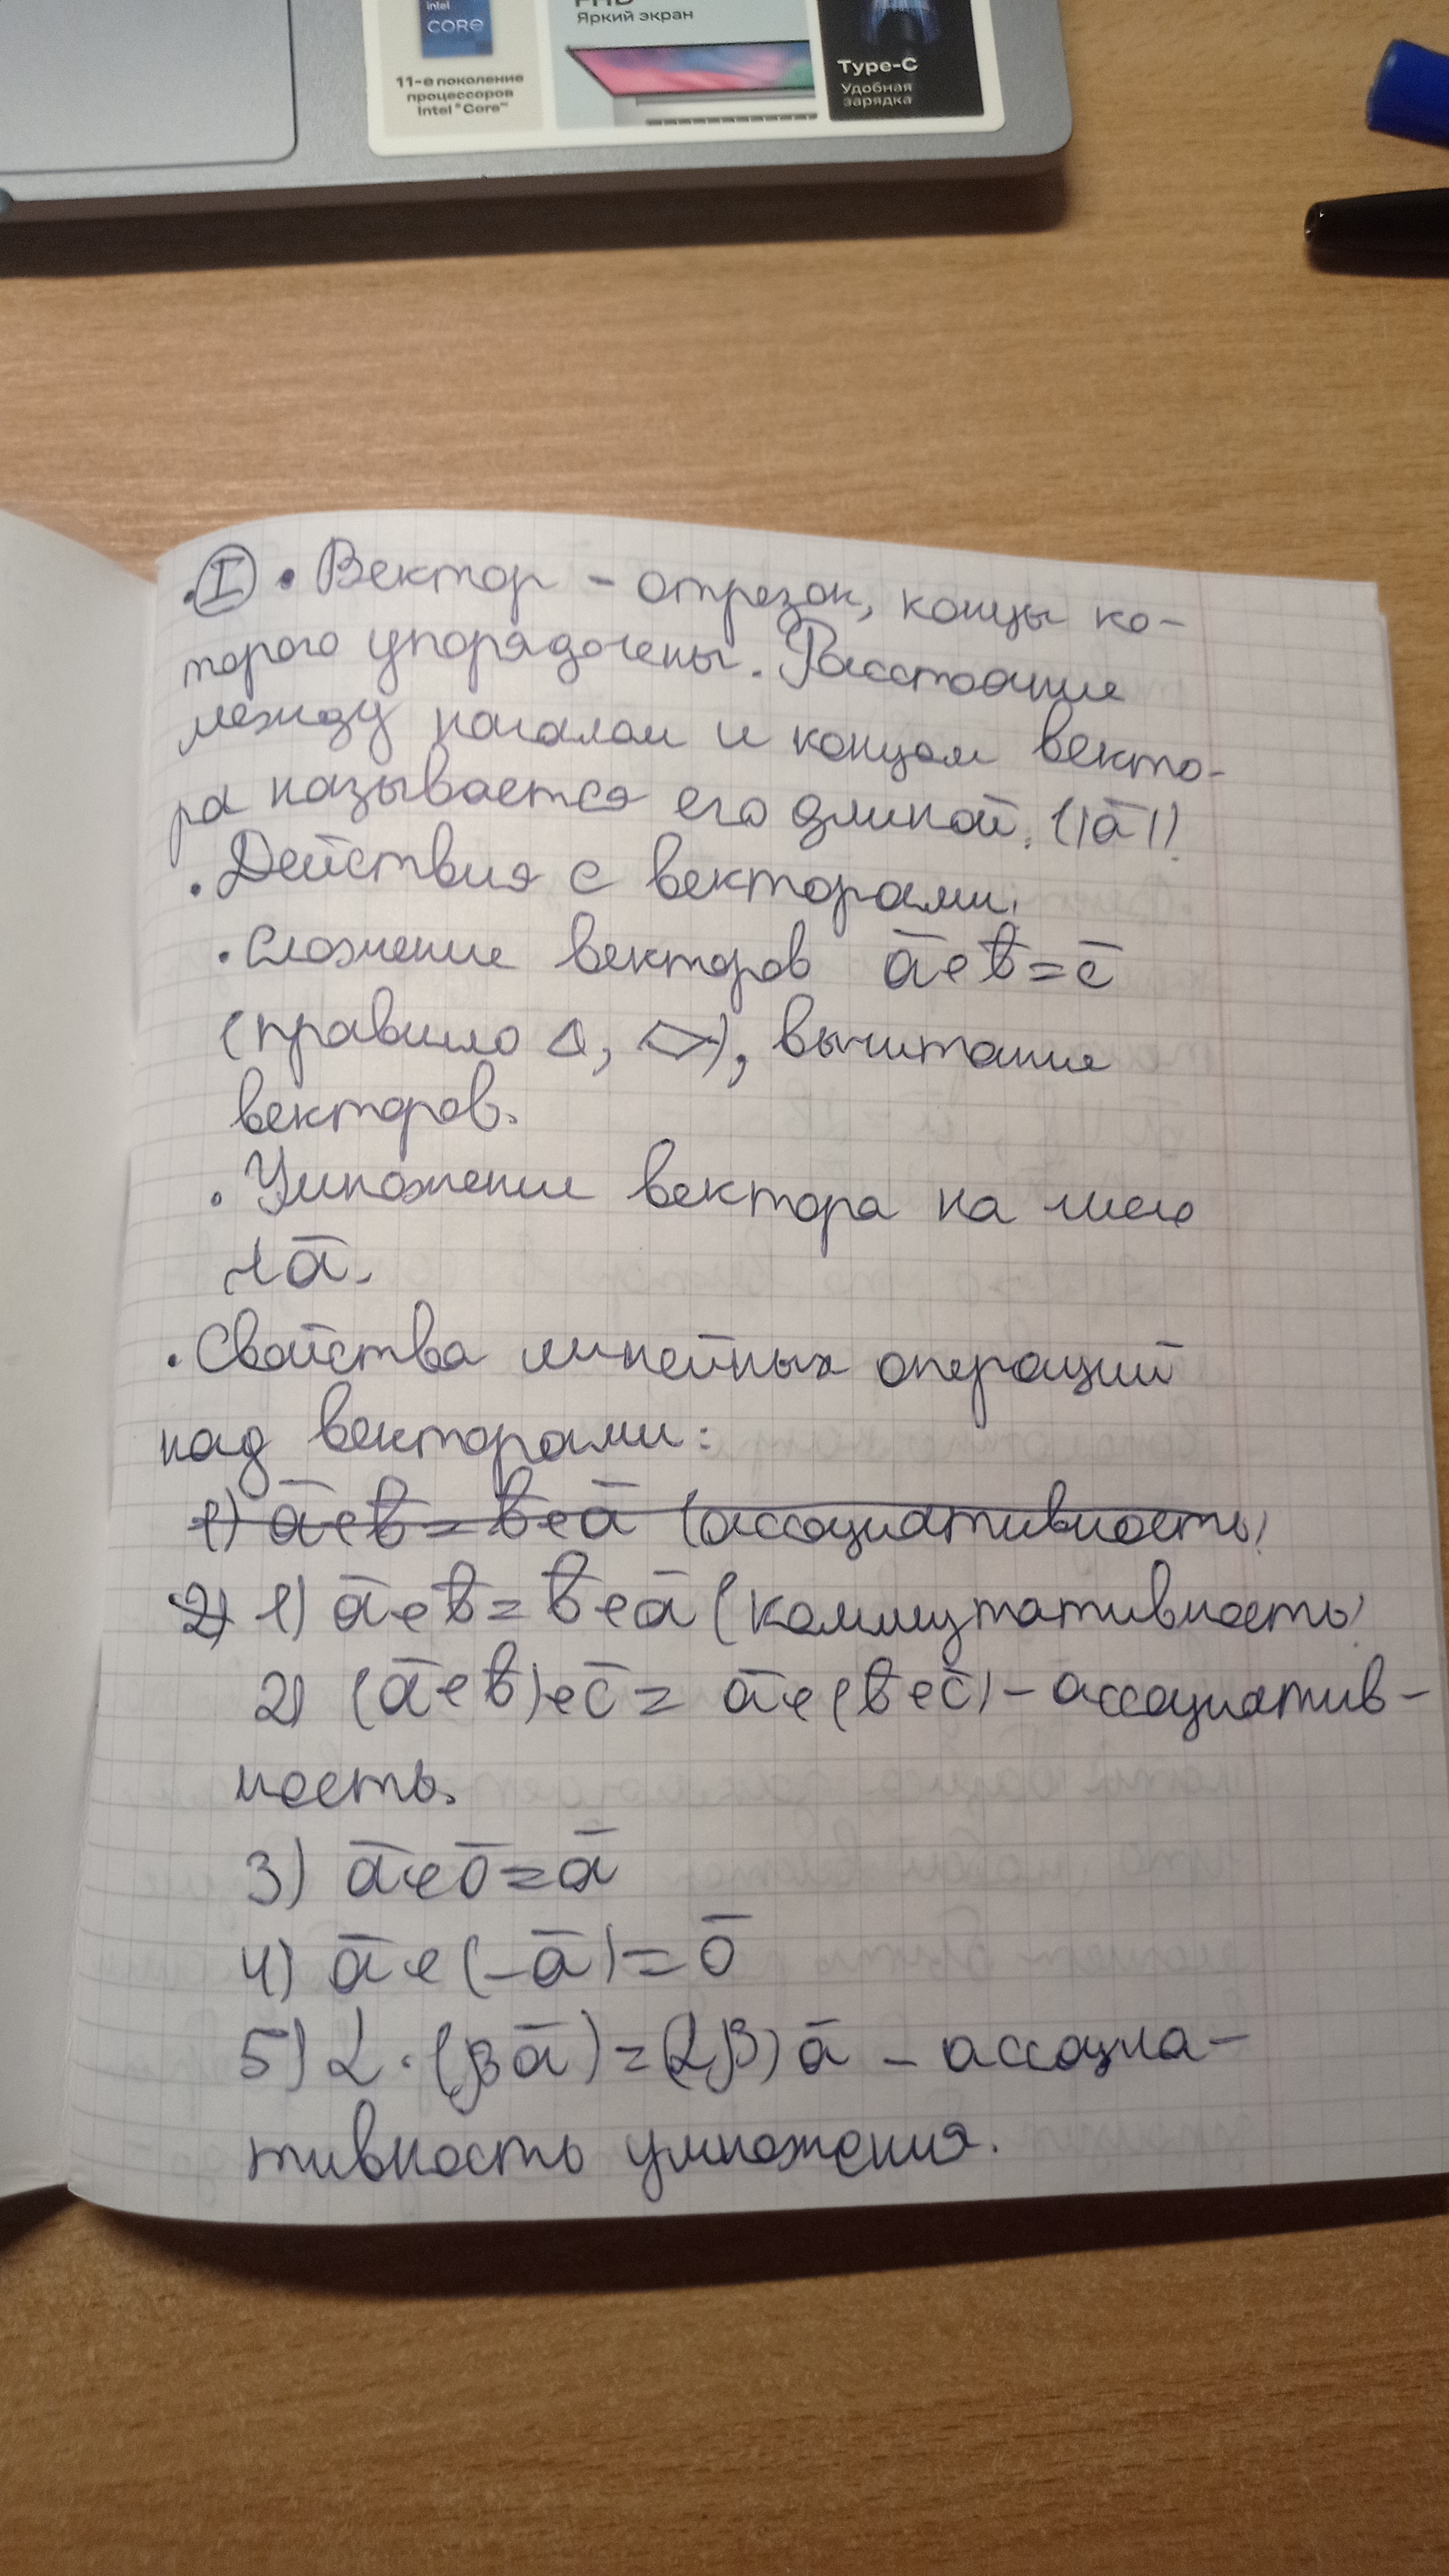 intel
CORE
11-е поколение
процессоров
Intel® Core™
FHD
Яркий экран
Type-C
Удобная
зарядка
I • Вектор - отрезок, концы ко-
торого упорядочены. Расстояние
между началом и концом векто-
ра называется его длиной. (|a̅|)
• Действия с векторами.
• Сложение векторов a̅+b̅=c̅
(правило △, ▱), вычитание
векторов.
• Умножение вектора на число
λa̅.
• Свойства линейных операций
над векторами:
1) a̅+b̅=b̅+a̅ (ассоциативность)
2) 1) a̅+b̅=b̅+a̅ (коммутативность)
2) (a̅+b̅)+c̅= a̅+(b̅+c̅) - ассоциатив-
ность.
3) a̅+0̅=a̅
4) a̅+(-a̅)=0̅
5) α·(βa̅)=(αβ)a̅ - ассоциа-
тивность умножения.